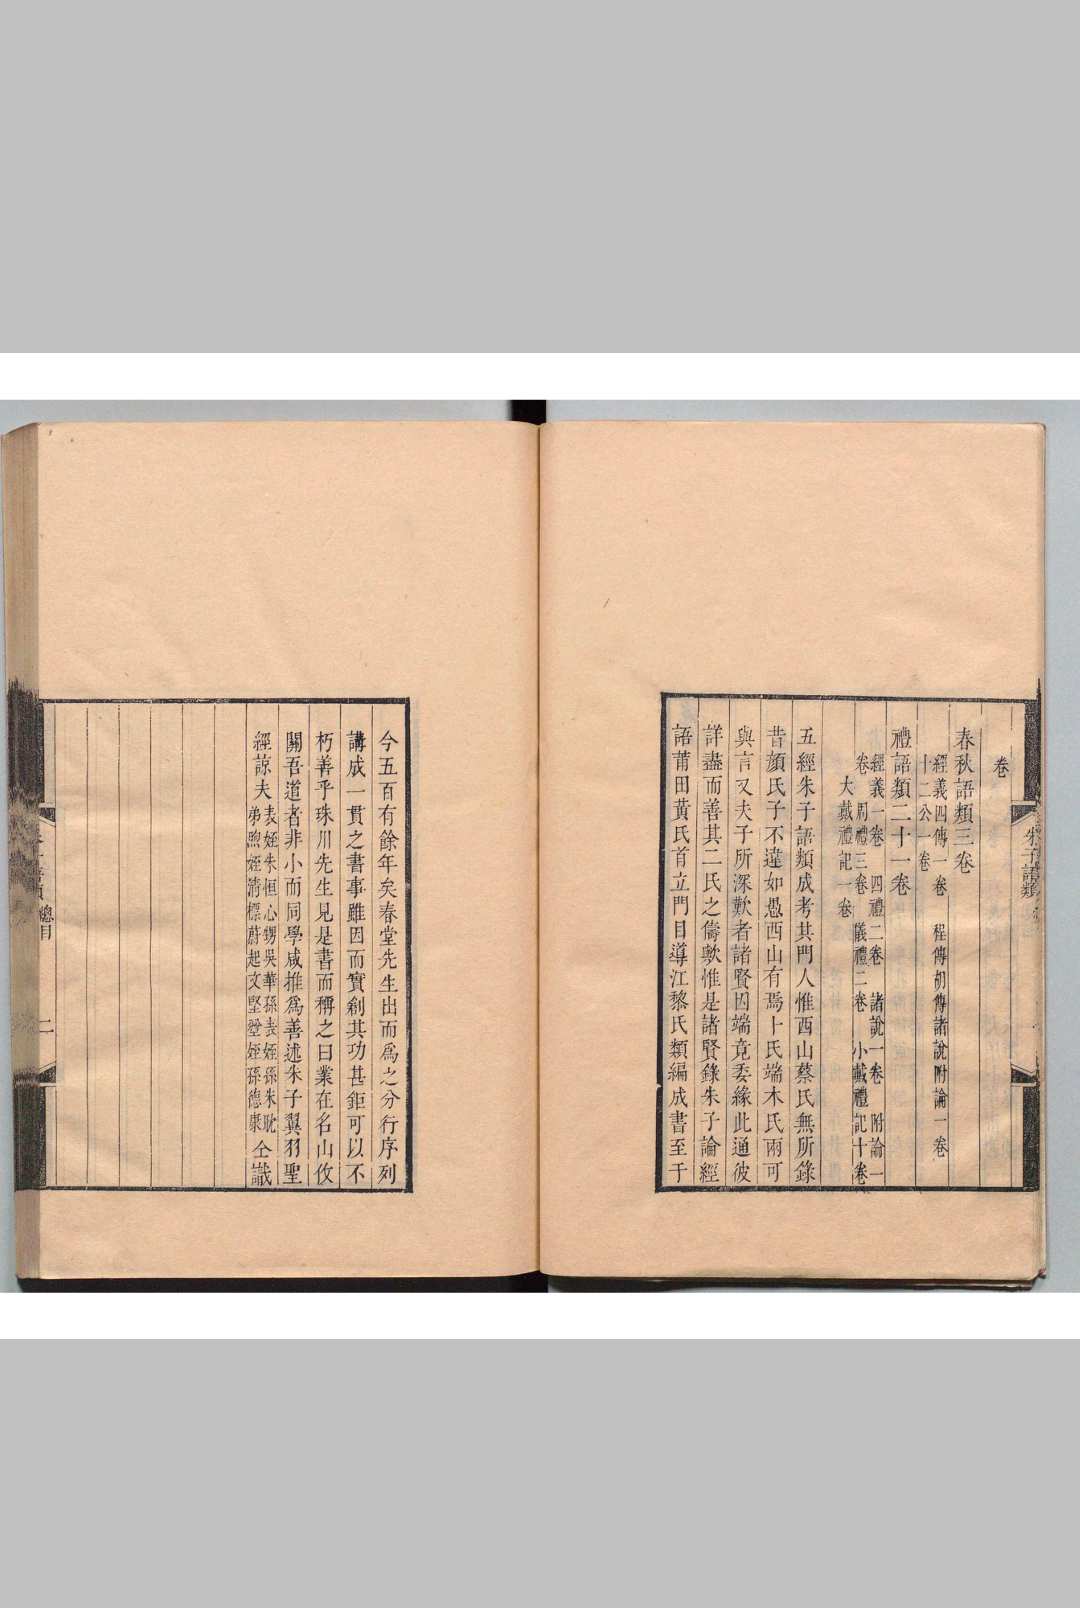 卷
春秋語類三卷
經義四傳一卷 程傳胡傳諸說附論一卷
十二公一卷
禮語類二十一卷
經義一卷 四禮二卷 諸說一卷 附論一
卷 周禮三卷 儀禮二卷 小戴禮記十卷
大戴禮記一卷
五經朱子語類成考其門人惟西山蔡氏無所錄
昔顔氏子不違如愚西山有焉卜氏端木氏兩可
與言又夫子所深歎者諸賢因端竟委緣此通彼
詳盡而善其二氏之儔歟惟是諸賢錄朱子論經
語莆田黄氏首立門目導江黎氏類編成書至于
朱子語類
今五百有餘年矣春堂先生出而爲之分行序列
講成一貫之書事雖因而實創其功甚鉅可以不
朽善乎珠川先生見是書而稱之曰業在名山攸
關吾道者非小而同學咸推爲善述朱子翼羽聖
經諒夫
表姪朱恒心甥吳華孫表姪孫朱耽
弟煦姪淸標蔚起文堅瑩姪孫德康
仝識
總目
二